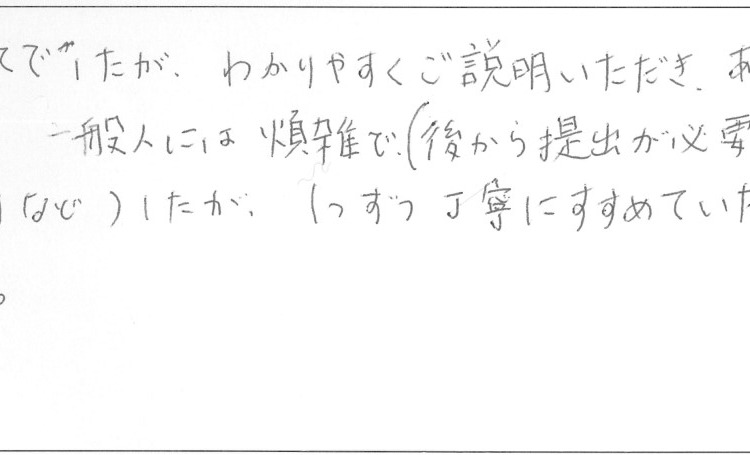 てでしたが、わかりやすくご説明いただき、あ
一般人には煩雑で、(後から提出が必要
など)したが、1つずつ丁寧にすすめていた
。